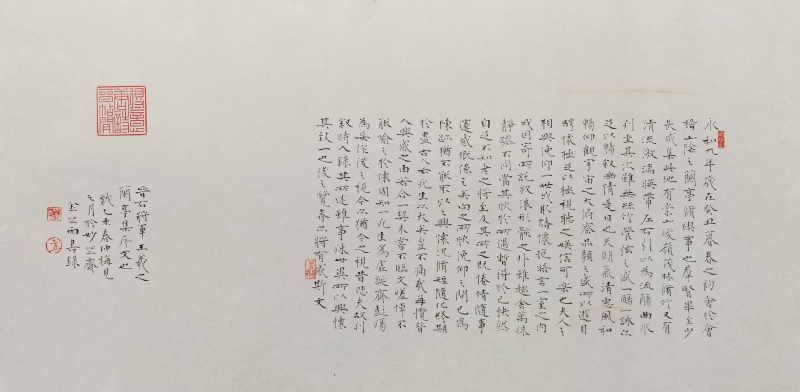 永和九年歲在癸丑暮春之初會於會
稽山陰之蘭亭脩禊事也羣賢畢至少
長咸集此地有崇山峻領茂林脩竹又有
清流激湍暎帶左右引以為流觴曲水
列坐其次雖無絲竹管弦之盛一觴一詠亦
足以暢敘幽情是日也天朗氣清惠風和
暢仰觀宇宙之大俯察品類之盛所以遊目
騁懷足以極視聽之娛信可樂也夫人之
相與俯仰一世或取諸懷抱晤言一室之內
或因寄所託放浪形骸之外雖趣舍萬殊
靜躁不同當其欣於所遇暫得於己快然
自足不知老之將至及其所之既惓情隨事
遷感慨係之矣向之所欣俛仰之間已為
陳跡猶不能不以之興懷況脩短隨化終期
於盡古人云死生亦大矣豈不痛哉每攬昔
人興感之由若合一契未嘗不臨文嗟悼不
能喻之於懷固知一死生為虛誕齊彭殤
為妄作後之視今亦猶今之視昔悲夫故列
敘時人錄其所述雖事殊世異所以興懷
其致一也後之覽者亦將有感斯文
晉右將軍王羲之
蘭亭集序文也
歲乙未春仲梅見
之月於妙竺齋